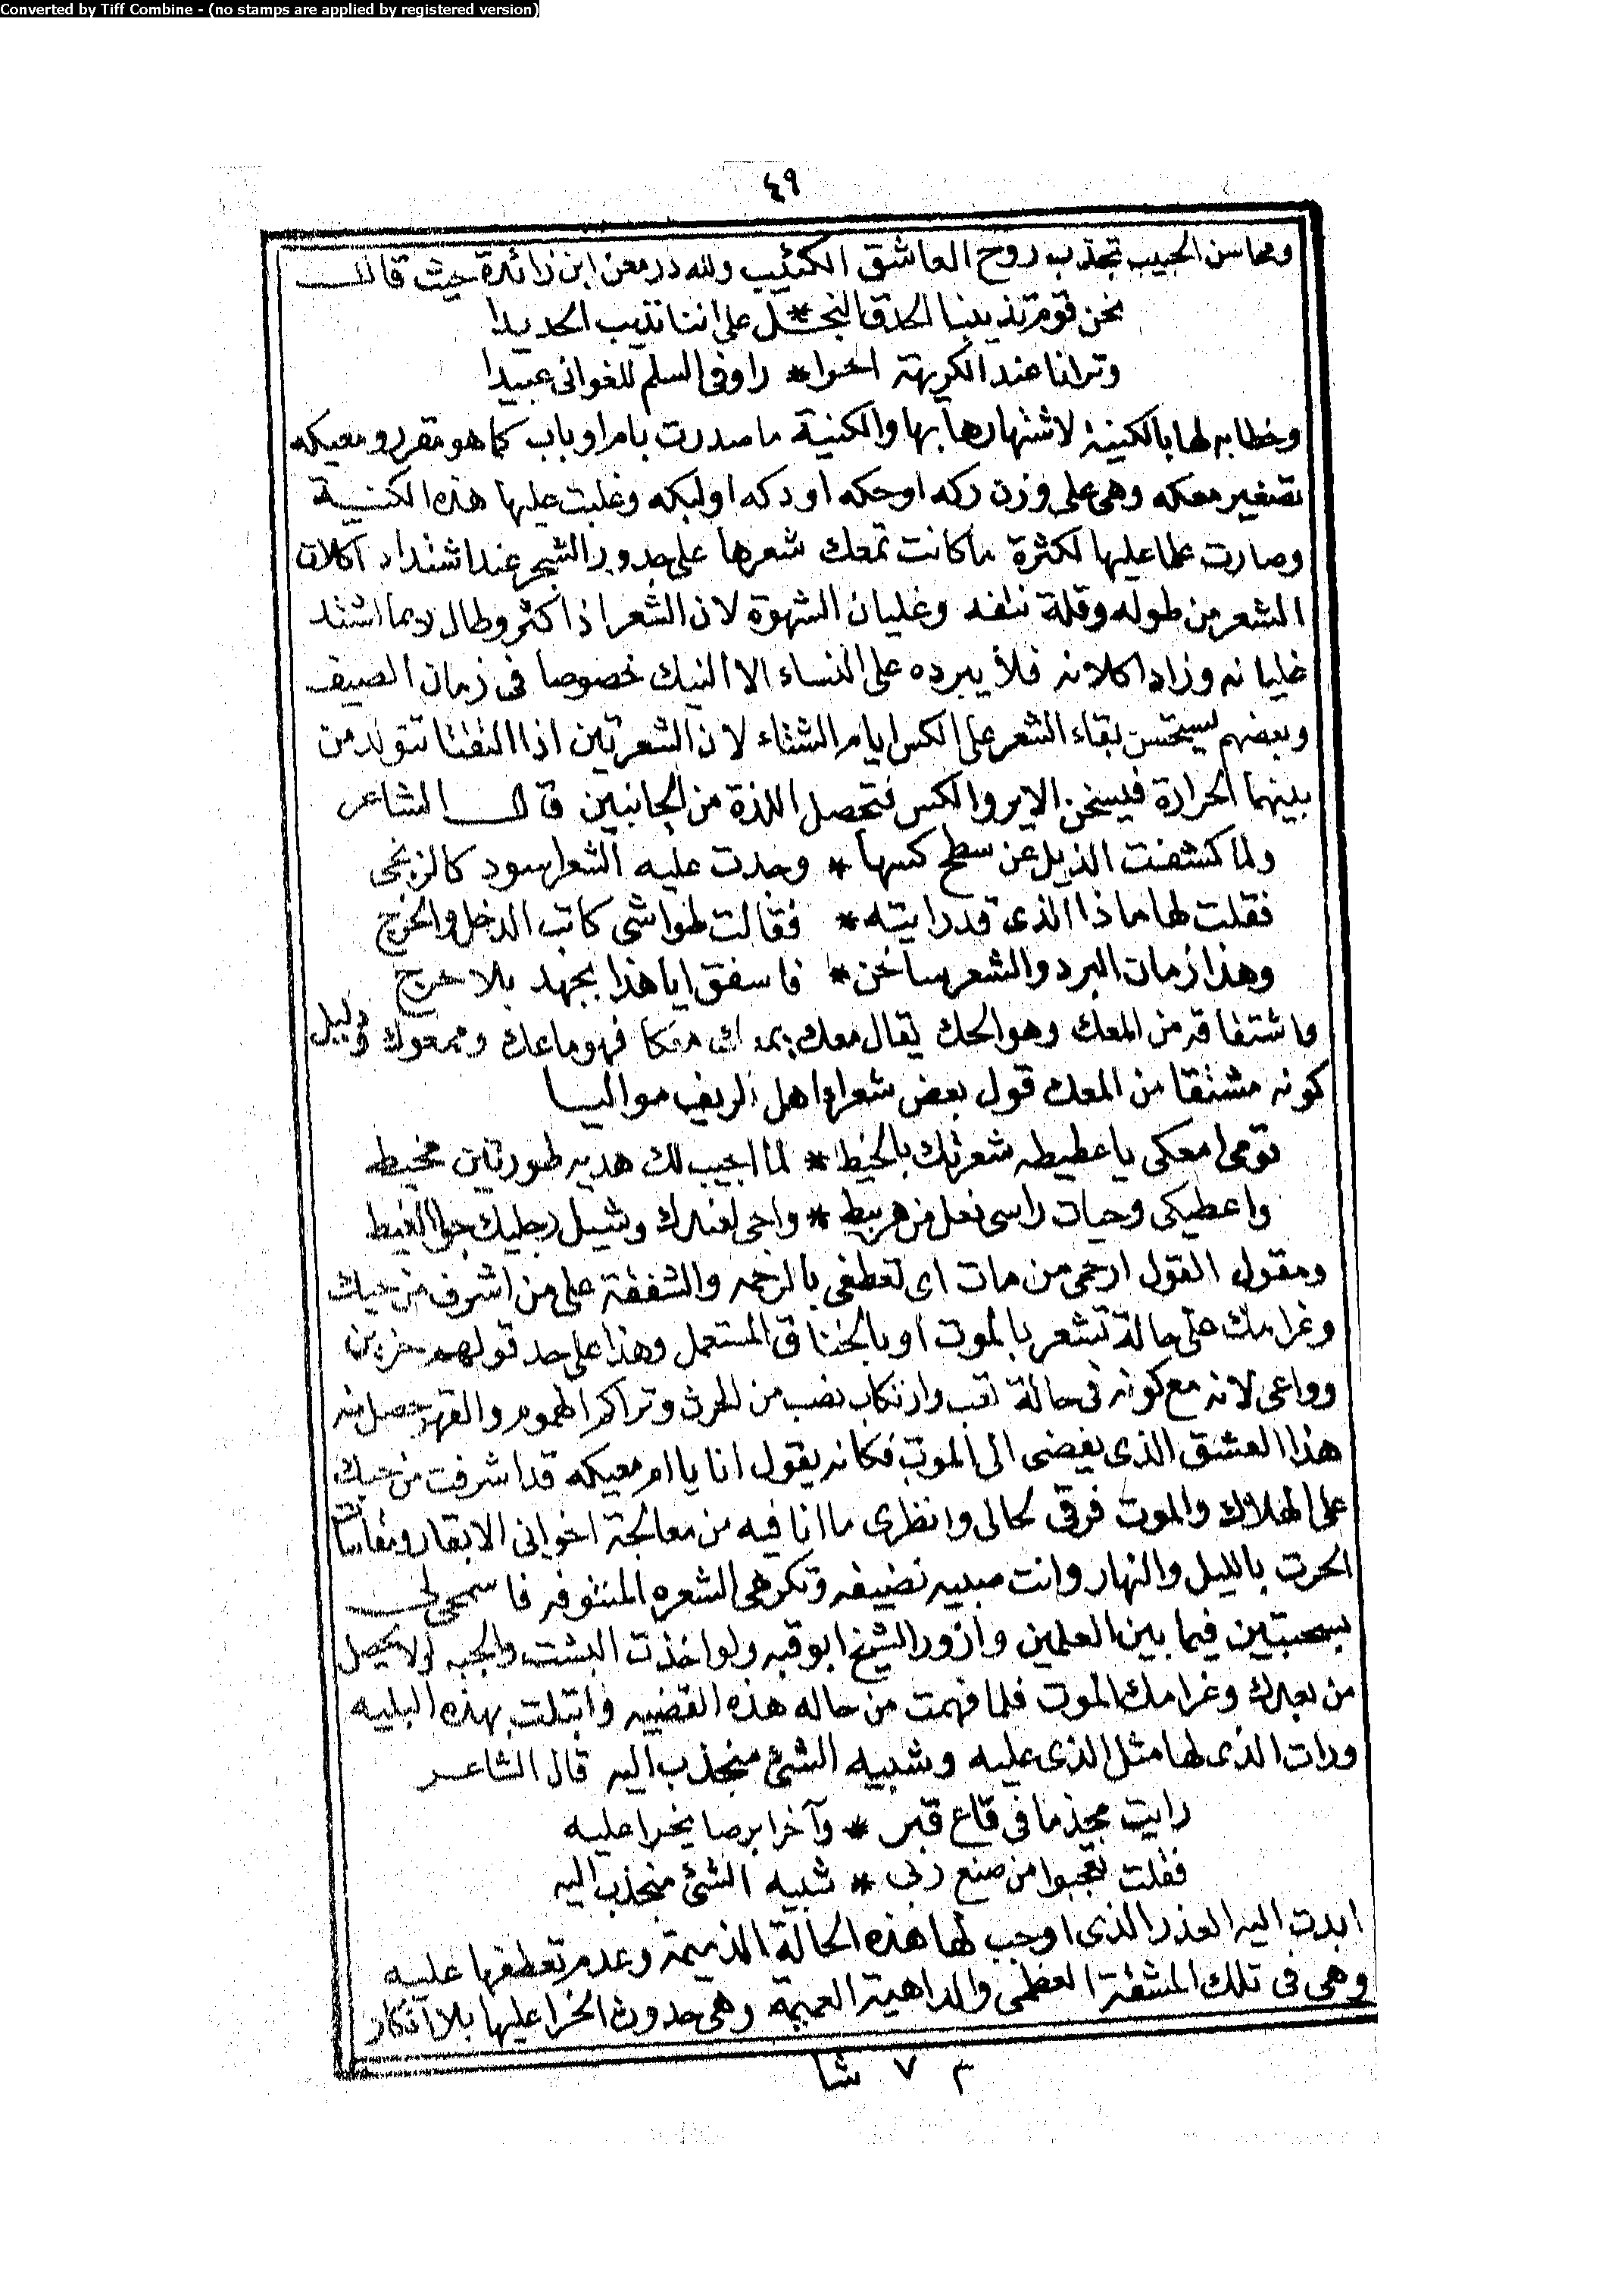 Converted by Tiff Combine - (no stamps are applied by registered version)
٤٩
ومحاسن الحبيب تجذب روح العاشق الكئيب ولله در معن ابن زائدة حيث قال
نحن قوم تذيبنا الحدق النجـ * ـل على اننا نذيب الحديدا
وترانا عند الكريهة احرا * را وفى السلم للغوانى عبيدا
وخطابه لها بالكنية لاشتهارها بها والكنية ما صدرت بام او باب كما هو مقرر ومعيكه
تصغير معكه وهى على وزن ركه او حكه او دكه او لبكه وغلبت عليها هذه الكنية
وصارت علما عليها لكثرة ما كانت تمعك شعرها على جدور الشجر عند اشتداد اكلان
الشعر من طوله وقلة نتفه وغليان الشهوة لان الشعر اذا كثر وطال ربما اشتد
غليانه وزاد اكلانه فلا يبرده على النساء الا النيك خصوصا فى زمان الصيف
وبعضهم يستحسن بقاء الشعر على الكس ايام الشتاء لان الشعرتين اذا التفتا تتولد من
بينهما الحرارة فيسخن الاير والكس فتحصل اللذة من الجانبين قال الشاعر
ولما كشفت الذيل عن سطح كسها * وجدت عليه الشعر اسود كالزنجى
فقلت لها ماذا الذى قد رايته * فقالت طواشى كاتب الدخل والخرج
وهذا زمان البرد والشعر ساخن * فاسفق ايا هذا بجهد بلا حرج
واشتقاقه من المعك وهو الحك يقال معك يمعك معكا فهو ماعك وممعوك ودليل
كونه مشتقا من المعك قول بعض شعراء اهل الريف مواليا
قومى امعكى يا عطيطه شعرتك بالخيط * لما اجيب لك هديه طورتين مخيط
واعطيكى وحيات راسى نعل من هربيط * واجى لعندك وشيل رجليك جوا الغيط
ومقول القول ارحمى من مات اى تعطفى بالرحمه والشفقة على من اشرف من حبك
وغرامك على حالة تشعر بالموت او بالخناق المستعمل وهذا على حد قولهم حزين
وواعى لانه مع كونه فى حالة تعب وارتكاب نصب من الحرث وتراكم الهموم والقهر حصل منه
هذا العشق الذى يفضى الى الموت فكانه يقول انا يا ام معيكه قد اشرفت من حبك
على الهلاك والموت فرقى لحالى وانظرى ما انا فيه من معالجة اخوانى الابقار ومقاسات
الحرت بالليل والنهار وانت صبيه نضيفه وتكرهى الشعره المنتوفه فاسمحى لى
بسحبتين فيما بين العلمين وازور الشيخ ابو قبه ولو اخذت البشت والجبه لولا يحصل
من بعدك وغرامك الموت فلما فهمت من حاله هذه القضيه وابتلت بهذه البليه
ورات الذى لها مثل الذى عليه وشبيه الشئ منجذب اليه قال الشاعر
رايت مجذما فى قاع قبر * وآخر ابرصا يخرا عليه
فقلت تعجبوا من صنع ربى * شبيه الشئ منجذب اليه
ابدت اليه العذر الذى اوجب لها هذه الحالة الذميمة وعدم تعطفها عليه
وهى فى تلك المشقة العظمى والداهية العميمه وهى حدوث الخرا عليها بلا انكار
م ٧ شا